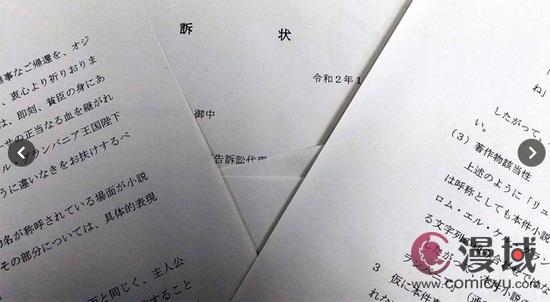 事なご帰還を、オジ
、衷心より祈りおりま
は、即刻、貧臣の身にあ
サの正当なる血を継がれ
ル・グランバニア王国陛下
うに違いなきをお扶けするべ
名が称呼されている場面が小説
その部分については、具体的表現
と同じく、主人公
すること
訴 状
令和2年1
御中
告訴訟代理
ね」
したがって、
い。
(3) 著作物該当性
上述のように「リュ
は呼称としても本件小説
ロム・エル・ケル・
る文字列
3 仮に本件
漫域
www.comicyu.com